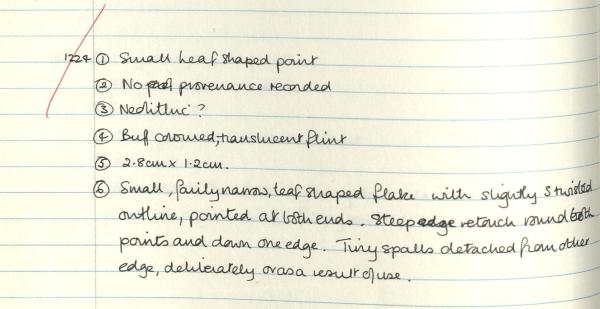 1224 ① Small leaf shaped point
② No prov provenance recorded
③ Neolithic?
④ Buff coloured, translucent flint
⑤ 2.8cm x 1.2cm.
⑥ Small, fairly narrow, leaf shaped flake with slightly S twisted
outline, pointed at both ends. Steep edge retouch round both
points and down one edge. Tiny spalls detached from other
edge, deliberately or as a result of use.